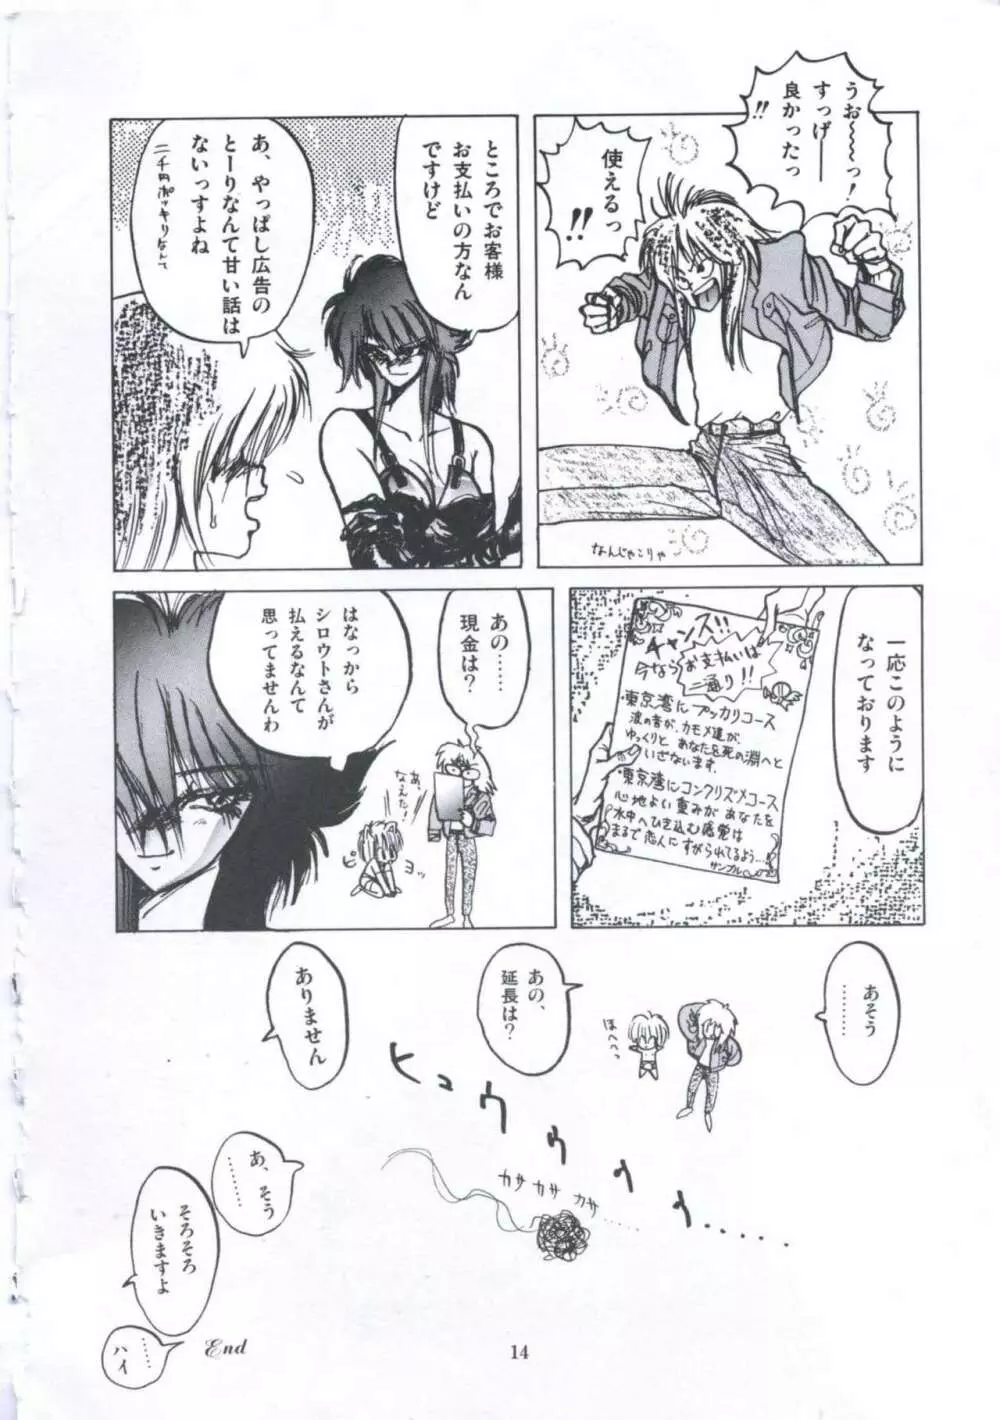 うお～～～っ！
すっげ――
良かったっ
!!
使えるっ
!!
なんじゃこりゃ
ところでお客様
お支払いの方なん
ですけど
あ、やっぱし広告の
とーりなんて甘い話は
ないっすよね
二千円ポッキリなんて
一応このように
なっております
チャンス!!
今なら
お支払いは
二通り!!
・東京湾にプッカリコース
波の音が、カモメ達が、
ゆっくりと あなたを死の淵へと
いざないます.
・東京湾にコンクリヅメコース
心地よい重みが あなたを
水中へひき込む感覚は
まるで恋人に すがられてるよう…!
サンプル
あの……
現金は？
はなっから
シロウトさんが
払えるなんて
思ってませんわ
あ、
なえた！
ピ
ヨッ
あそう
………
ほへっっ
あの、
延長は？
ありません
ヒュウウウ……
カサ カサ カサ……
あ、そう
………
そろそろ
いきますよ
……
ハイ
End
14